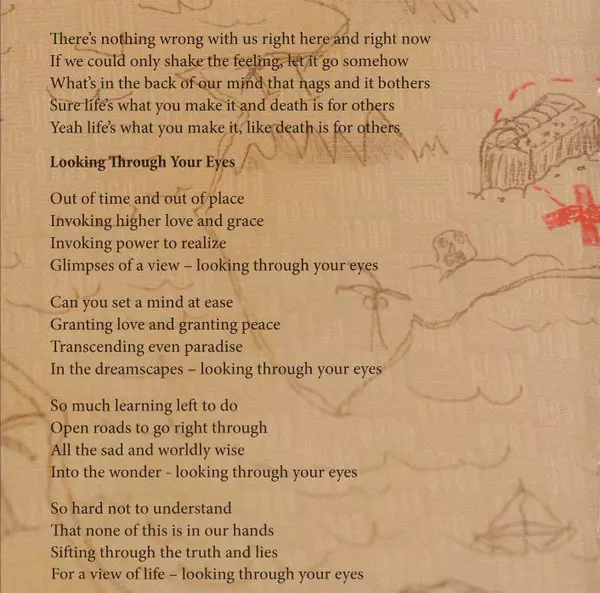 There's nothing wrong with us right here and right now
If we could only shake the feeling, let it go somehow
What's in the back of our mind that nags and it bothers
Sure life's what you make it and death is for others
Yeah life's what you make it, like death is for others
Looking Through Your Eyes
Out of time and out of place
Invoking higher love and grace
Invoking power to realize
Glimpses of a view – looking through your eyes
Can you set a mind at ease
Granting love and granting peace
Transcending even paradise
In the dreamscapes – looking through your eyes
So much learning left to do
Open roads to go right through
All the sad and worldly wise
Into the wonder - looking through your eyes
So hard not to understand
That none of this is in our hands
Sifting through the truth and lies
For a view of life – looking through your eyes